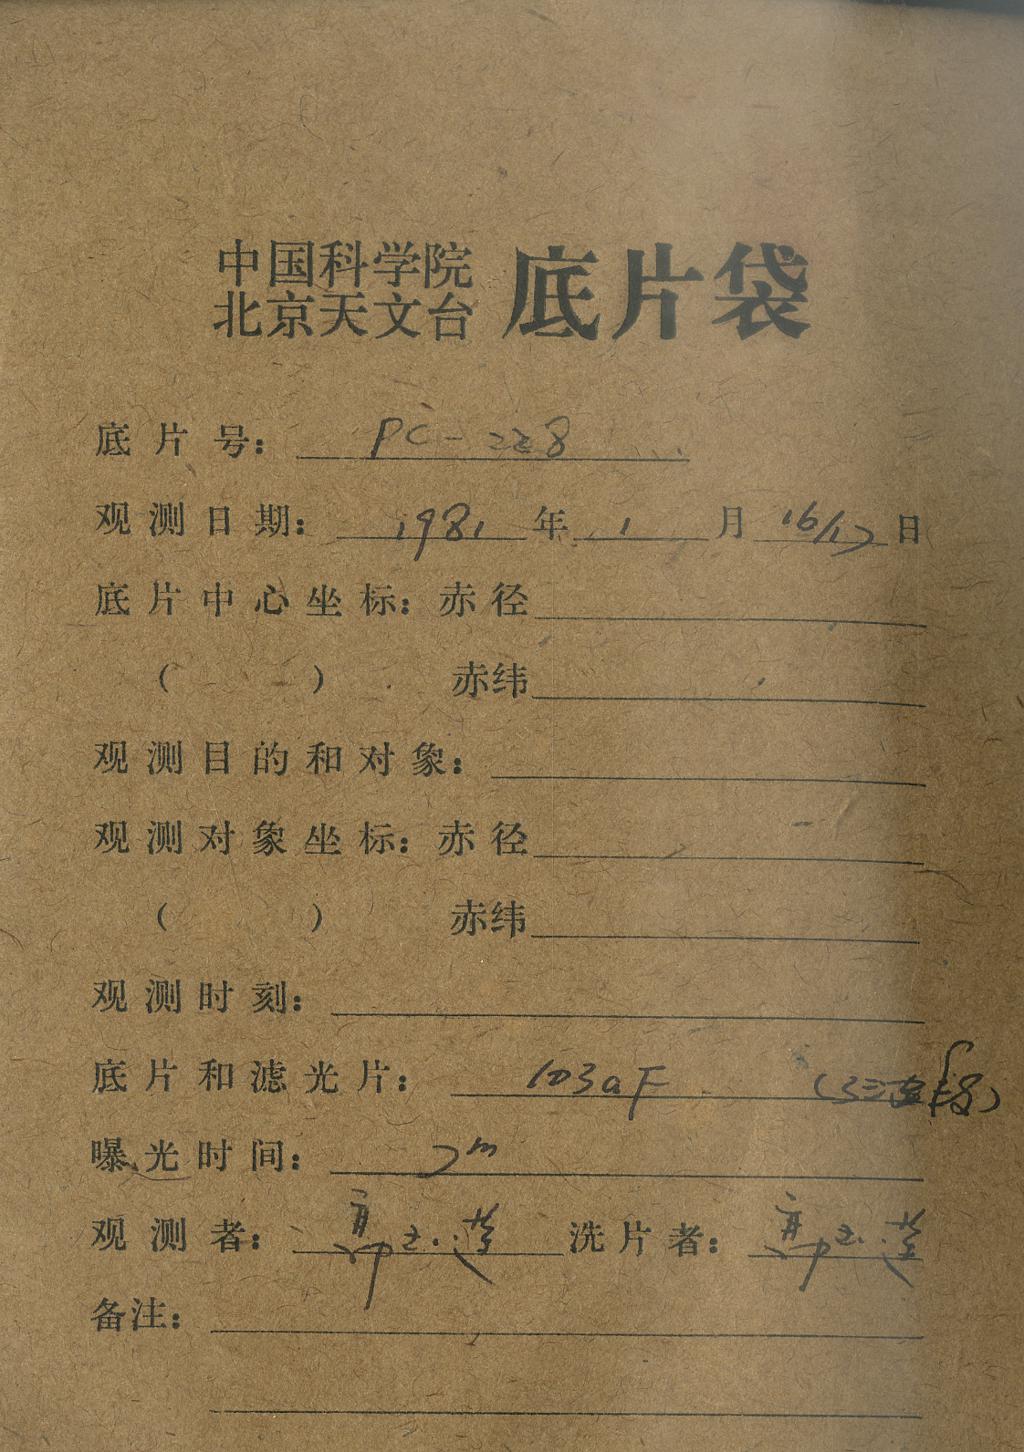 中国科学院
北京天文台 底片袋
底片号： PC-228
观测日期： 1981 年 1 月 16/17 日
底片中心坐标：赤径
（ ） 赤纬
观测目的和对象：
观测对象坐标：赤径
（ ） 赤纬
观测时刻：
底片和滤光片： 103aF
曝光时间： 2m
观测者： 洗片者：
备注：